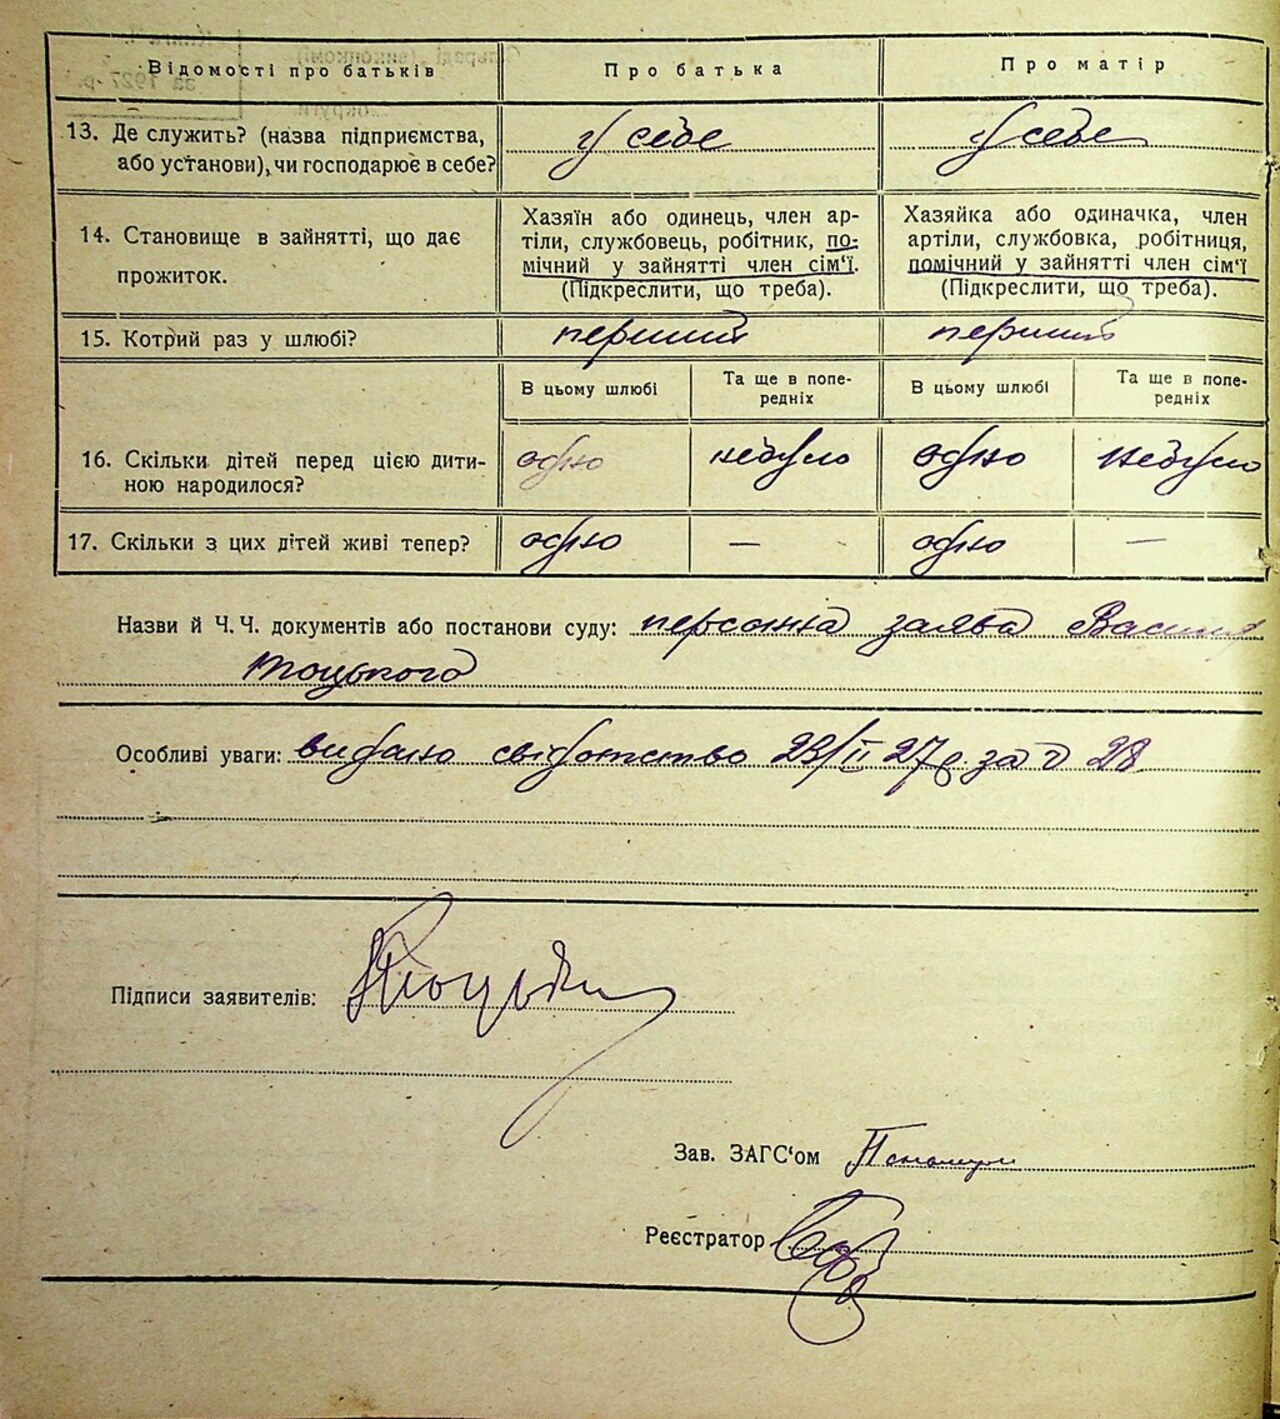 Відомості про батьків Про батька Про матір
13. Де служить? (назва підприємства, або установи), чи господарює в себе? у себе у себе
14. Становище в зайнятті, що дає прожиток.
Хазяїн або одинець, член ар-
тіли, службовець, робітник, по-
мічний у зайнятті член сім'ї.
(Підкреслити, що треба).
Хазяйка або одиначка, член
артіли, службовка, робітниця,
помічний у зайнятті член сім'ї
(Підкреслити, що треба).
15. Котрий раз у шлюбі? перший перший
В цьому шлюбі Та ще в попе-
редніх В цьому шлюбі Та ще в попе-
редніх
16. Скільки дітей перед цією дити-
ною народилося? одно небуло одно небуло
17. Скільки з цих дітей живі тепер? одно — одно —
Назви й Ч. Ч. документів або постанови суду: персонна заява Василя
Тоцького
Особливі уваги: видано свідотство 23/II 27р за № 28
Підписи заявителів:
Зав. ЗАГС'ом
Реєстратор